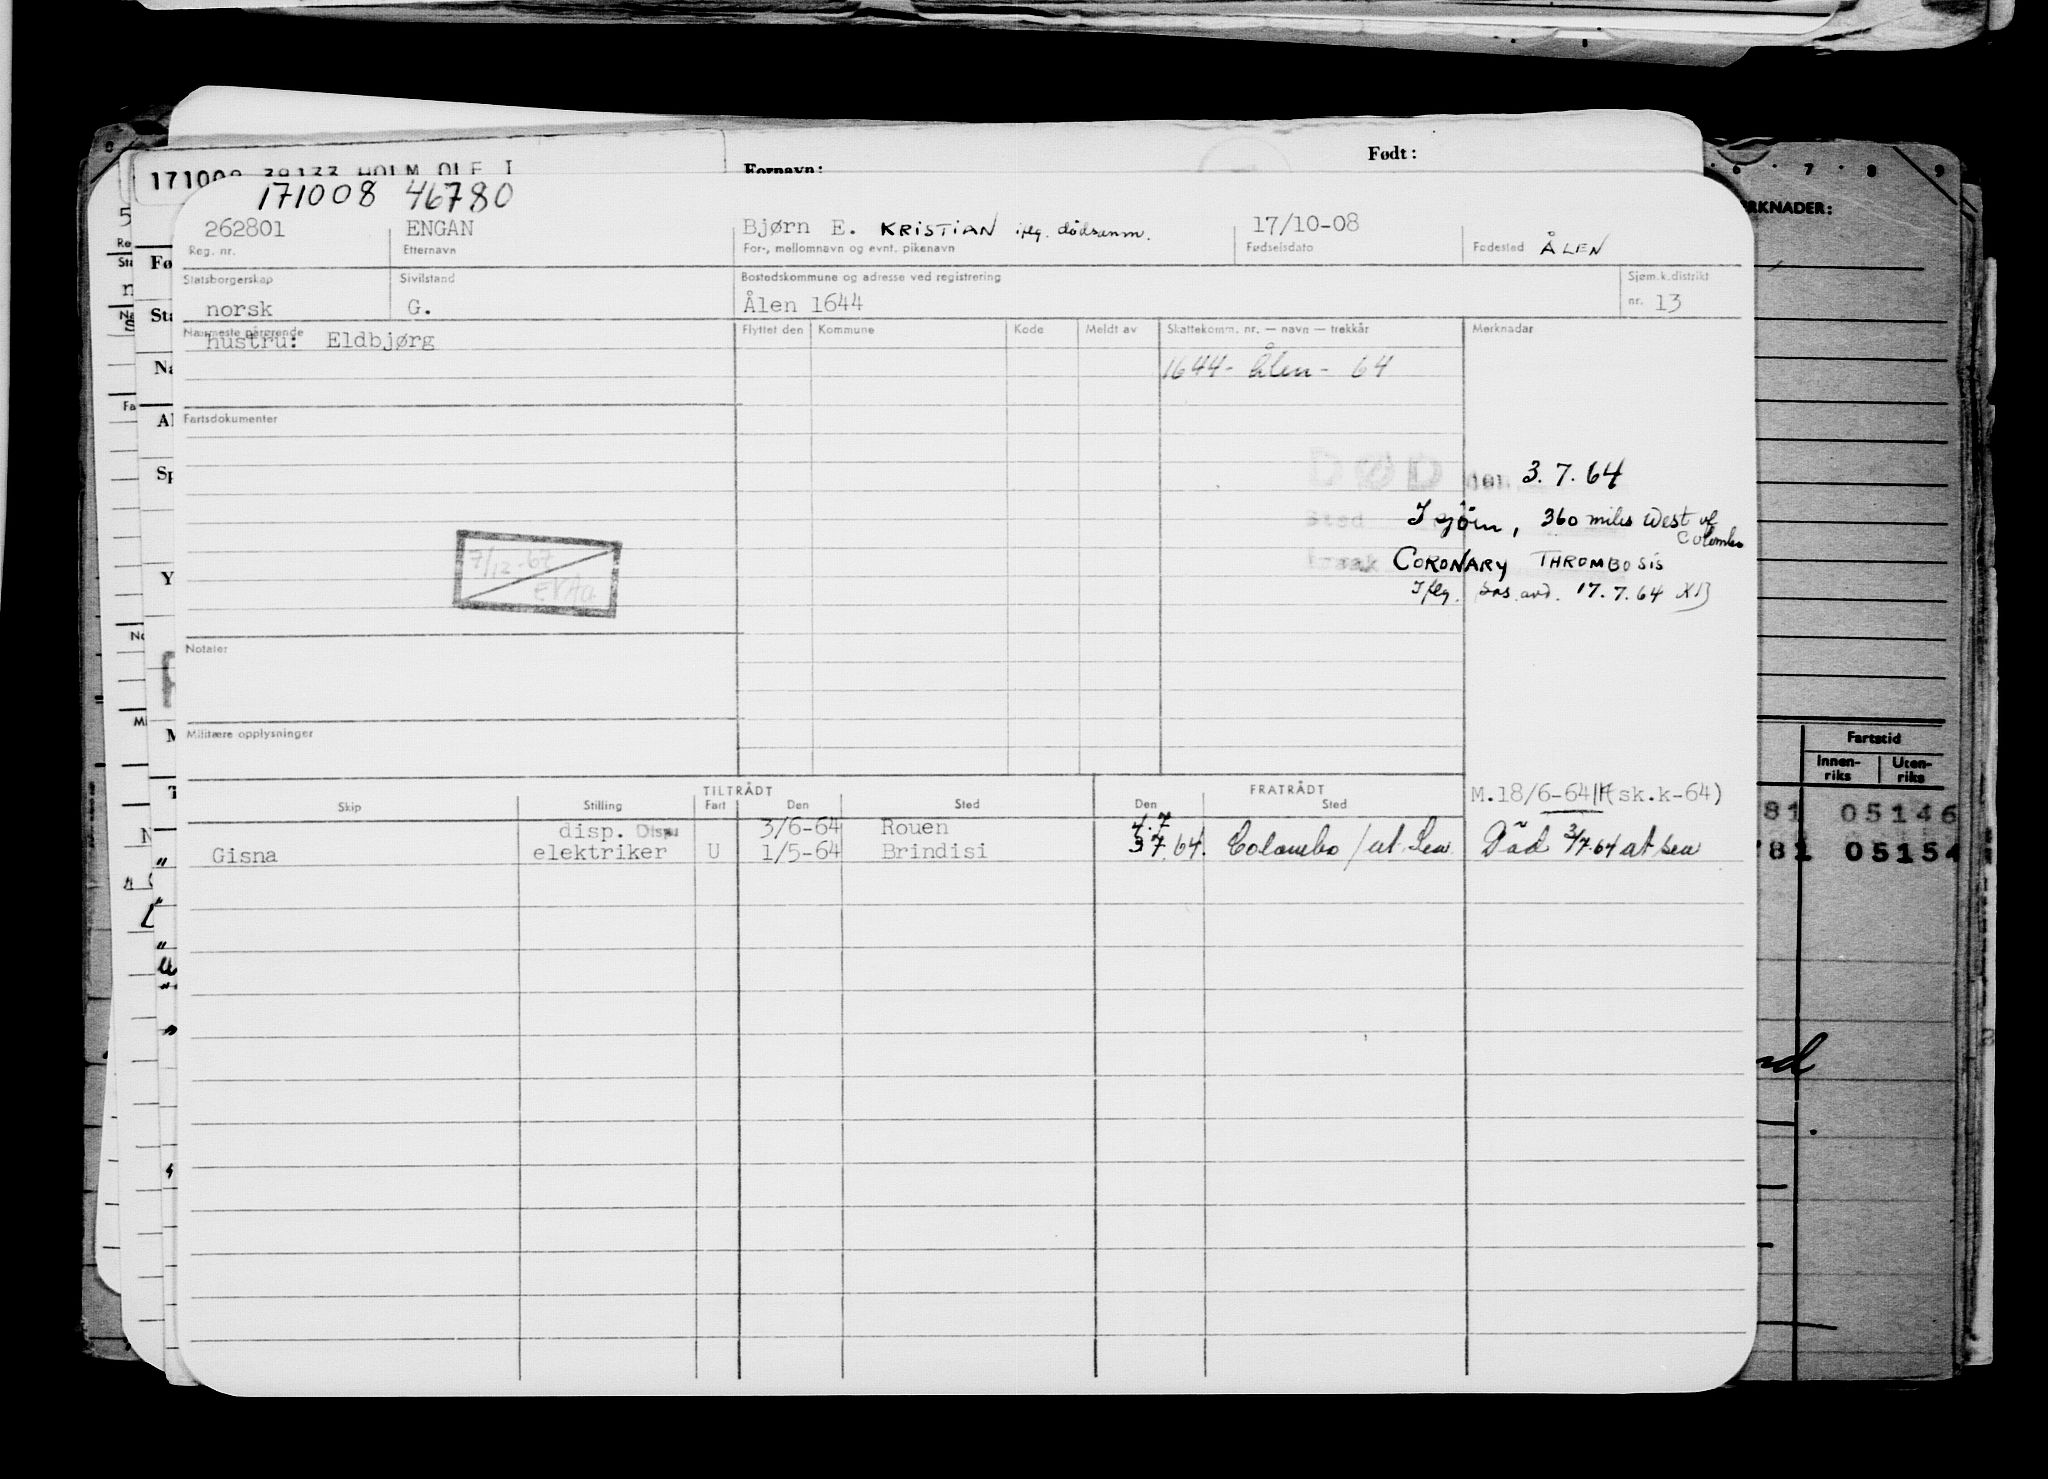 171008 39133 HOLM OLE I
Fornavn:
Født:
171008 46780
262801 ENGAN Bjørn E. KRISTIAN iflg. dødsanm. 17/10-08
Reg. nr. Etternavn For-, mellomnavn og evnt. pikenavn Fødselsdato Fødested ÅLEN
Statsborgerskap Sivilstand Bostedskommune og adresse ved registrering Sjøm.k.distrikt
norsk G. Ålen 1644 nr. 13
Nærmeste pårørende Flyttet den Kommune Kode Meldt av Skattekomm. nr. — navn — trekkår Merknadar
hustru: Eldbjørg
1644- Ålen- 64
Fartsdokumenter
DØD den 3.7.64
Sted I sjøen, 360 miles West of Colombo
Årsak CORONARY THROMBOSIS
Iflg. sos. avd. 17.7.64
7/12-67
Notater
Militære opplysninger
TILTRÅDT FRATRÅDT M.18/6-64 (sk.k-64)
Skip Stilling Fart Den Sted Den Sted
disp. Disp. 3/6-64 Rouen 4.7
Gisna elektriker U 1/5-64 Brindisi 3.7.64. Colombo / at Sea Död 3/7.64 at sea
6 7 8 9
RKNADER:
Fartstid
Innen-riks Uten-riks
81 05146
781 05154